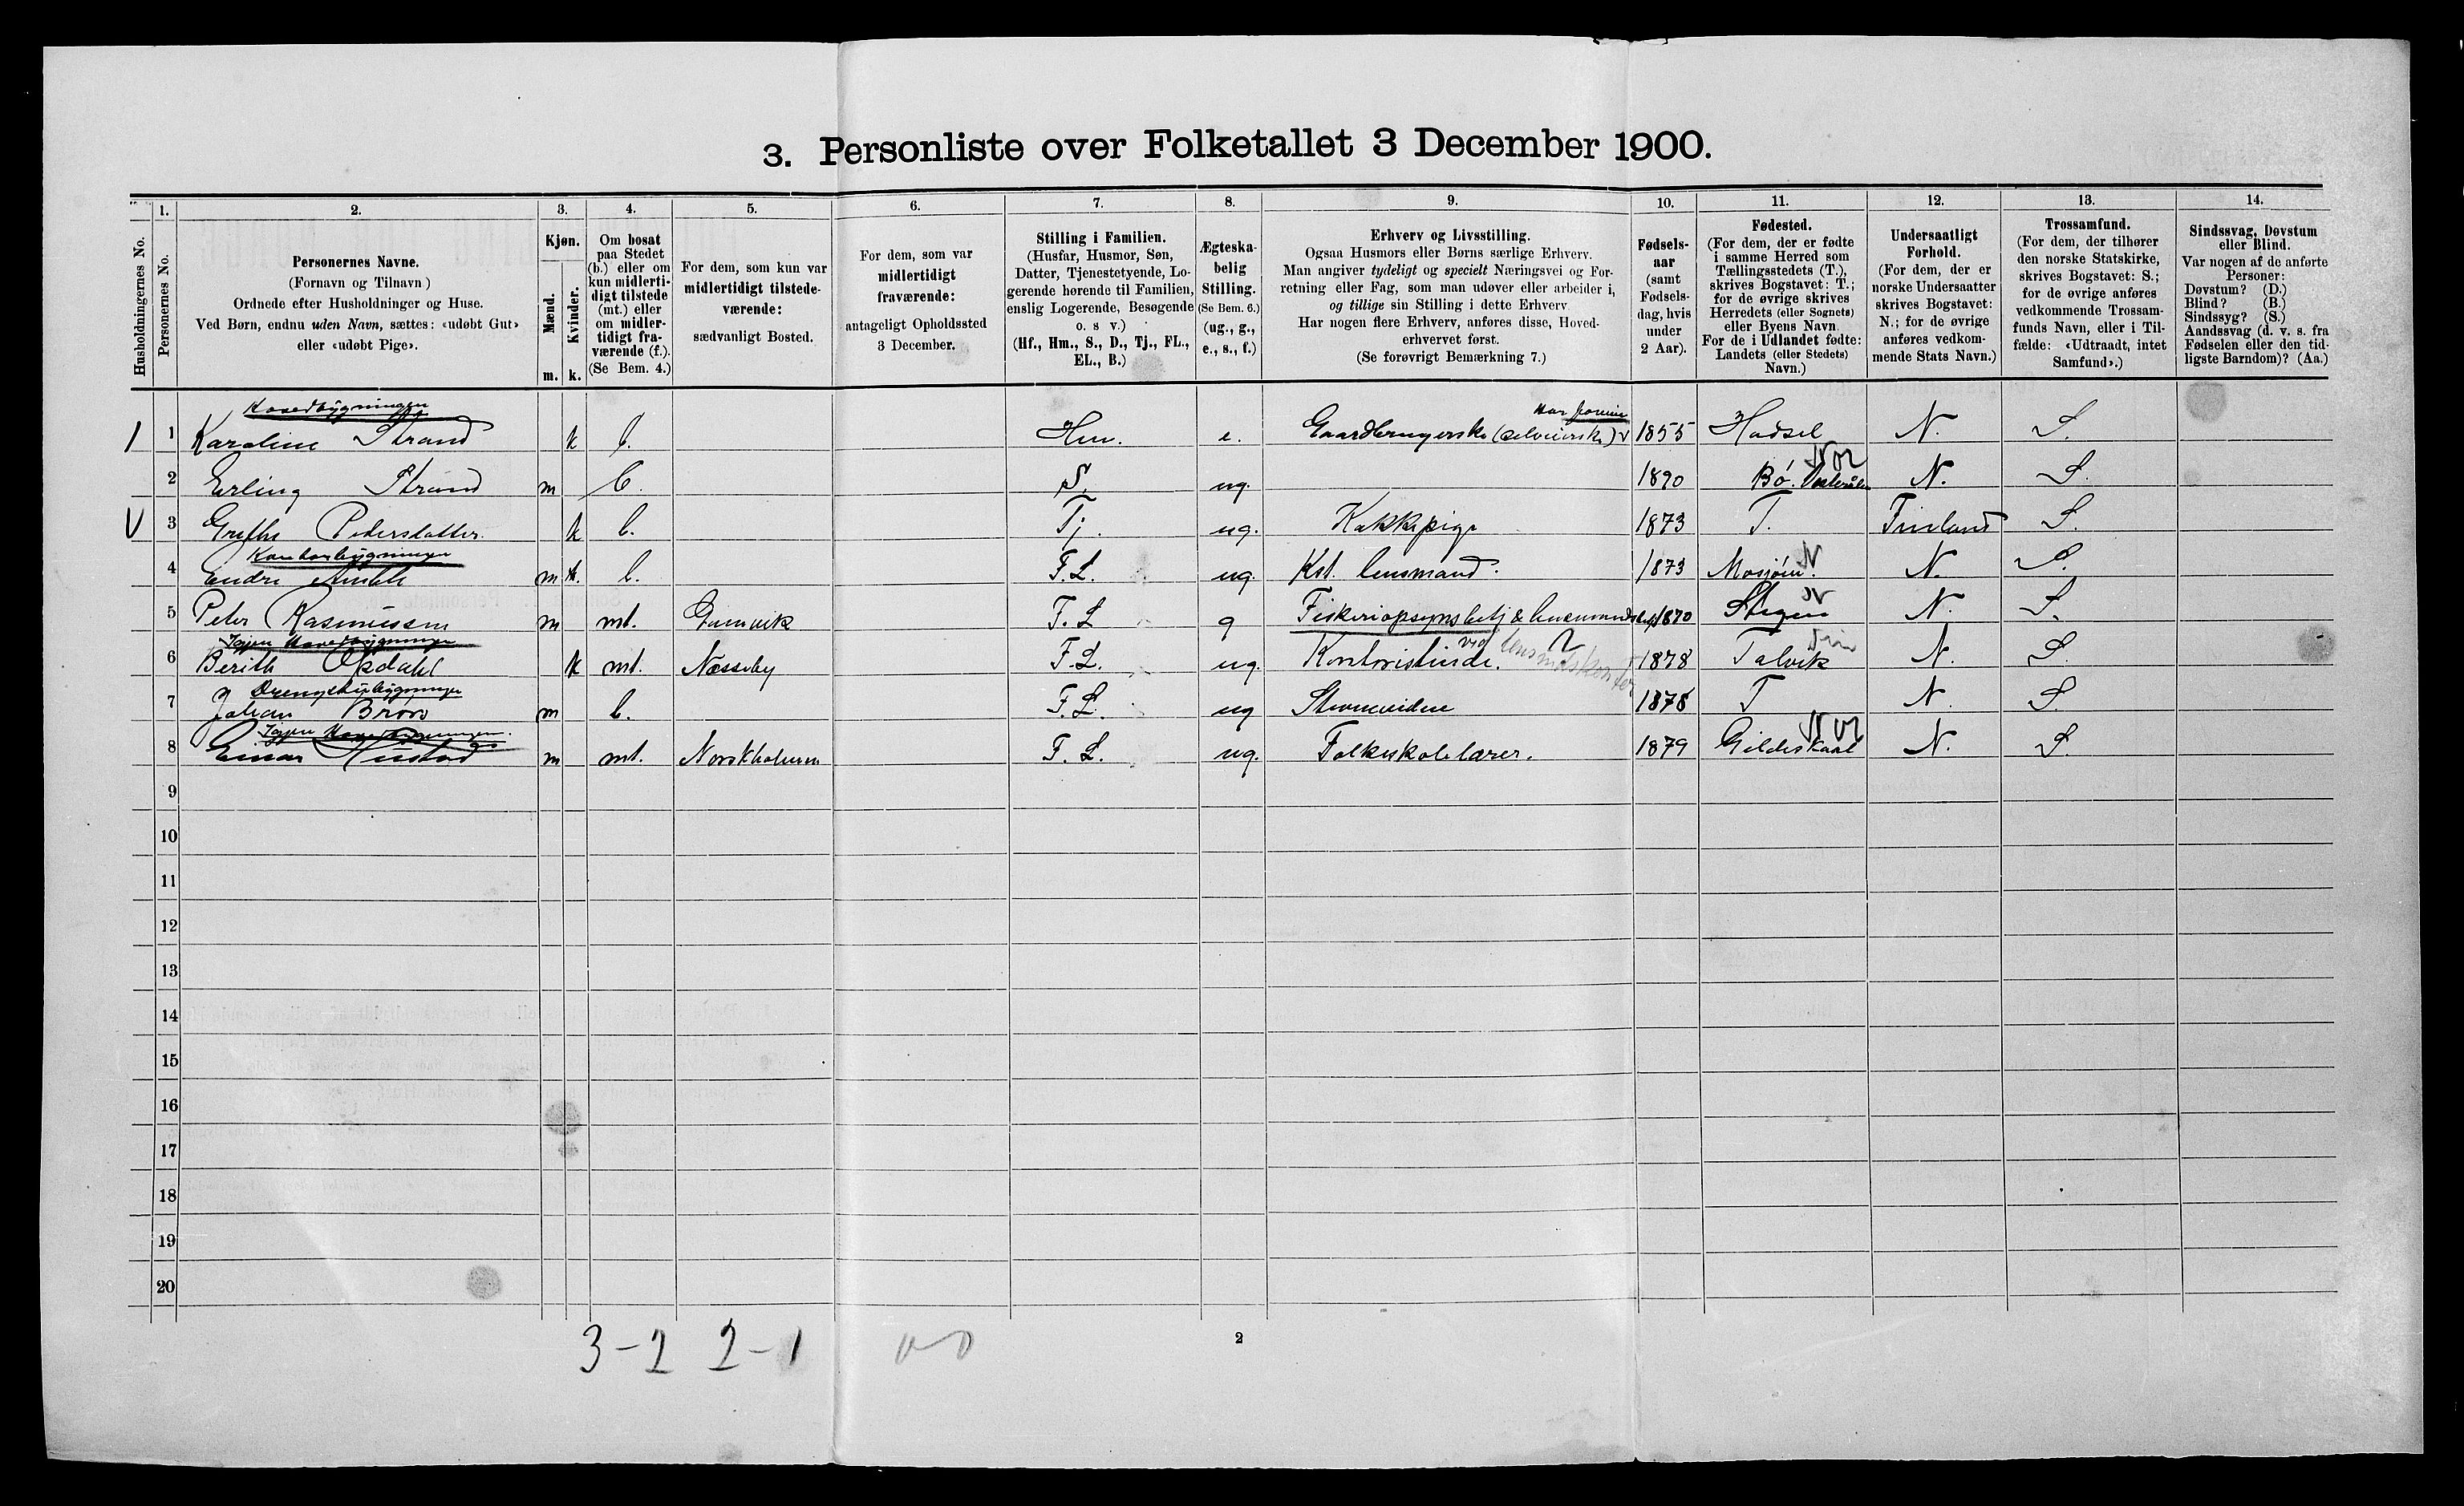 3. Personliste over Folketallet 3 December 1900.
Husholdningernes No.
1.
Personernes No.
2.
Personernes Navne.
(Fornavn og Tilnavn)
Ordnede efter Husholdninger og Huse.
Ved Børn, endnu uden Navn, sættes: «udøbt Gut»
eller «udøbt Pige».
3.
Kjøn.
Mænd.
Kvinder.
m. k.
4.
Om bosat
paa Stedet
(b.) eller om
kun midlerti-
digt tilstede
(mt.) eller
om midler-
tidigt fra-
værende (f.).
(Se Bem. 4.)
5.
For dem, som kun var
midlertidigt tilstede-
værende:
sædvanligt Bosted.
6.
For dem, som var
midlertidigt
fraværende:
antageligt Opholdssted
3 December.
7.
Stilling i Familien.
(Husfar, Husmor, Søn,
Datter, Tjenestetyende, Lo-
gerende hørende til Familien,
enslig Logerende, Besøgende
o. s v.)
(Hf., Hm., S., D., Tj., FL.,
EL., B.)
8.
Ægteska-
belig
Stilling.
(Se Bem. 6.)
(ug., g.,
e., s., f.)
9.
Erhverv og Livsstilling.
Ogsaa Husmors eller Børns særlige Erhverv.
Man angiver tydeligt og specielt Næringsvei og For-
retning eller Fag, som man udøver eller arbeider i,
og tillige sin Stilling i dette Erhverv.
Har nogen flere Erhverv, anføres disse, Hoved-
erhvervet først.
(Se forøvrigt Bemærkning 7.)
10.
Fødsels-
aar
(samt
Fødsels-
dag, hvis
under
2 Aar).
11.
Fødested.
(For dem, der er fødte
i samme Herred som
Tællingsstedets (T.),
skrives Bogstavet: T.;
for de øvrige skrives
Herredets (eller Sognets)
eller Byens Navn.
For de i Udlandet fødte:
Landets (eller Stedets)
Navn.)
12.
Undersaatligt
Forhold.
(For dem, der er
norske Undersaatter
skrives Bogstavet:
N.; for de øvrige
anføres vedkom-
mende Stats Navn.)
13.
Trossamfund.
(For dem, der tilhører
den norske Statskirke,
skrives Bogstavet: S.;
for de øvrige anføres
vedkommende Trossam-
funds Navn, eller i Til-
fælde: «Udtraadt, intet
Samfund».)
14.
Sindssvag, Døvstum
eller Blind.
Var nogen af de anførte
Personer:
Døvstum? (D.)
Blind? (B.)
Sindssyg? (S.)
Aandssvag (d. v. s. fra
Fødselen eller den tid-
ligste Barndom)? (Aa.)
Hovedbygningen
1 1 Karoline Strand k b. Hm. e. Gaardbrugerske (selveierske) 1855 Hadsel N. S.
2 Erling Strand m b. S. ug. 1890 Bø. Vesterålen N. S.
3 Grethe Pedersdatter k b. Tj. ug. Kokkepige 1873 T. Finland S.
Kontorbygningen
4 Endre m b. F.L. ug. Kst. lensmand. 1873 Mosjøen. N N. S.
5 Peter Rasmussen m mt. Gamvik F.L g Fiskeriopsynsbetj & 1870 Stegen N N. S.
Igjen Hovedbygningen
6 Berith Opdahl k mt. Næsseby F.L. ug. Kontoristinde. ved lensmdskontor 1878 Talvik Fin N. S.
Drengestubygningen
7 Johan Brox m b. F.L. ug 1878 T N. S
Igjen Hovedbygningen.
8 Einar Hustad m mt. Norskholmen F. L. ug. Folkeskolelærer. 1879 Gildeskaal N. S.
9
10
11
12
13
14
15
16
17
18
19
20
3-2 2-1 0-0
2